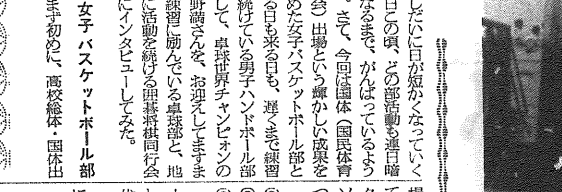 しだいに日が短かくなっていく
日この頃、どの部活動も連日暗
なるまで、がんばっているよう
。さて、今回は国体（国民体育
会）出場という輝かしい成果を
めた女子バスケットボール部と
る日も来る日も、遅くまで練習
続けている男子ハンドボール部
して、卓球世界チャンピオンの
野満さんを、お迎えしてますま
練習に励んでいる卓球部と、地
に活動を続ける囲碁将棋同行会
にインタビューしてみた。
女子バスケットボール部
まず初めに、高校総体・国体出